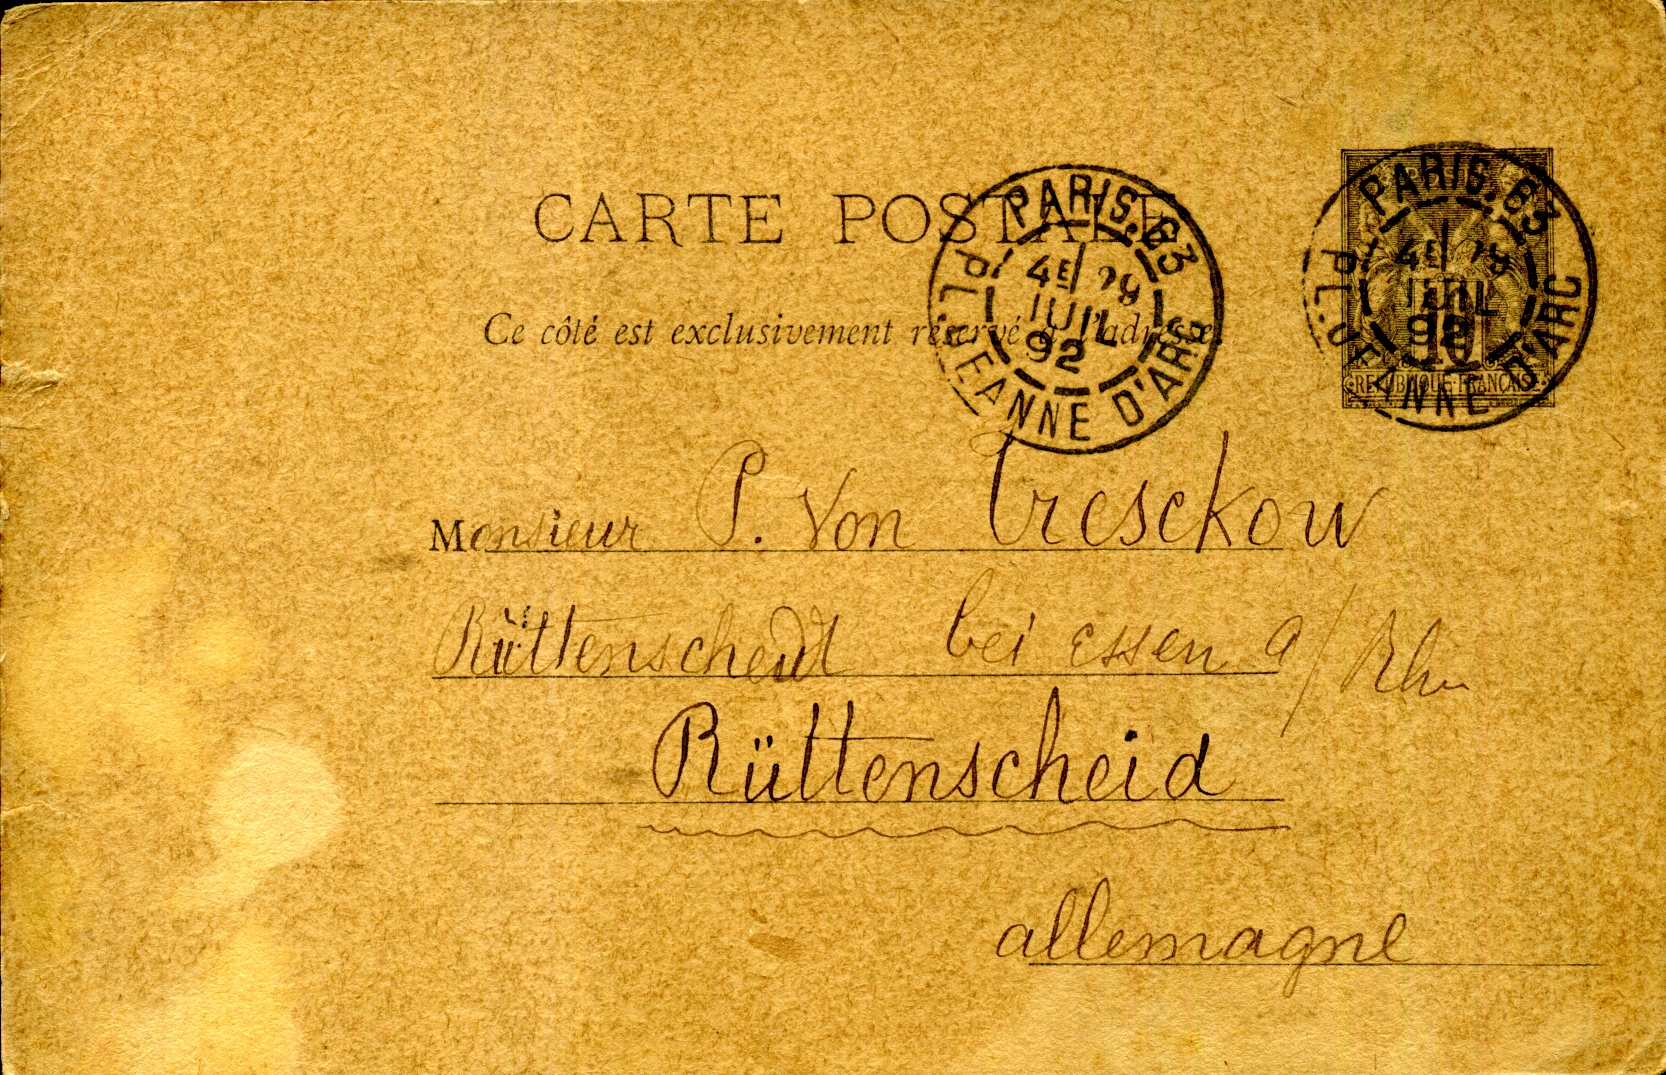 CARTE POSTALE
Ce côté est exclusivement réservé à l'adresse.
PARIS. 63
4E/ 29
JUIL
92
PL. JEANNE D'ARC
PARIS. 63
4E/ 29
JUIL
92
PL. JEANNE D'ARC
10
REPUBLIQUE FRANÇAISE
Monsieur P. Von Tresckow
Rüttenscheidt bei Essen a/Rh
Rüttenscheid
allemagne